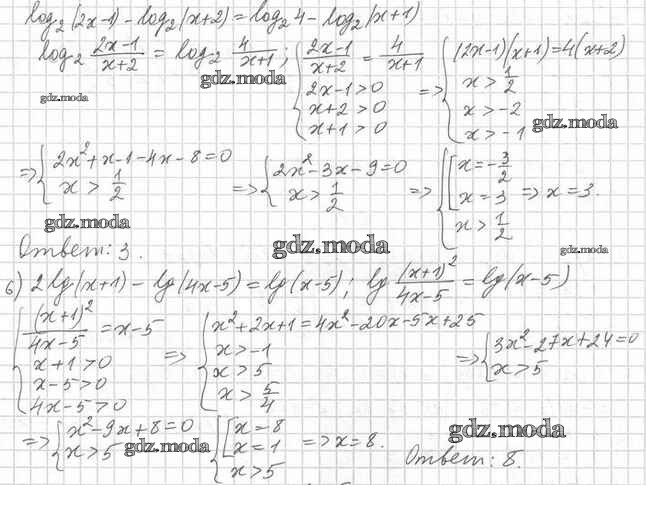 log₂(2x-1) - log₂(x+2) = log₂4 - log₂(x+1)
log₂ (2x-1)/(x+2) = log₂ 4/(x+1); { (2x-1)/(x+2) = 4/(x+1) ; 2x-1>0 ; x+2>0 ; x+1>0 => { (2x-1)(x+1)=4(x+2) ; x > 1/2 ; x > -2 ; x > -1
gdz.moda
gdz.moda
gdz.moda
=> { 2x²+x-1-4x-8=0 ; x > 1/2 => { 2x²-3x-9=0 ; x > 1/2 => { [ x=-3/2 ; x=3 ; x > 1/2 => x=3.
gdz.moda
gdz.moda
gdz.moda
Ответ: 3.
б) 2lg(x+1) - lg(4x-5) = lg(x-5); lg (x+1)²/(4x-5) = lg(x-5)
{ (x+1)²/(4x-5) = x-5 ; x+1>0 ; x-5>0 ; 4x-5>0 => { x²+2x+1=4x²-20x-5x+25 ; x>-1 ; x>5 ; x > 5/4 => { 3x²-27x+24=0 ; x>5
=> { x²-9x+8=0 ; x>5 { [ x=8 ; x=1 ; x>5 => x=8.
gdz.moda
gdz.moda
Ответ: 8.